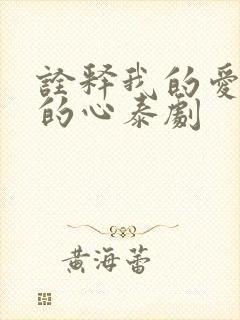 詮释我的愛
的心泰劇
黄海蕾